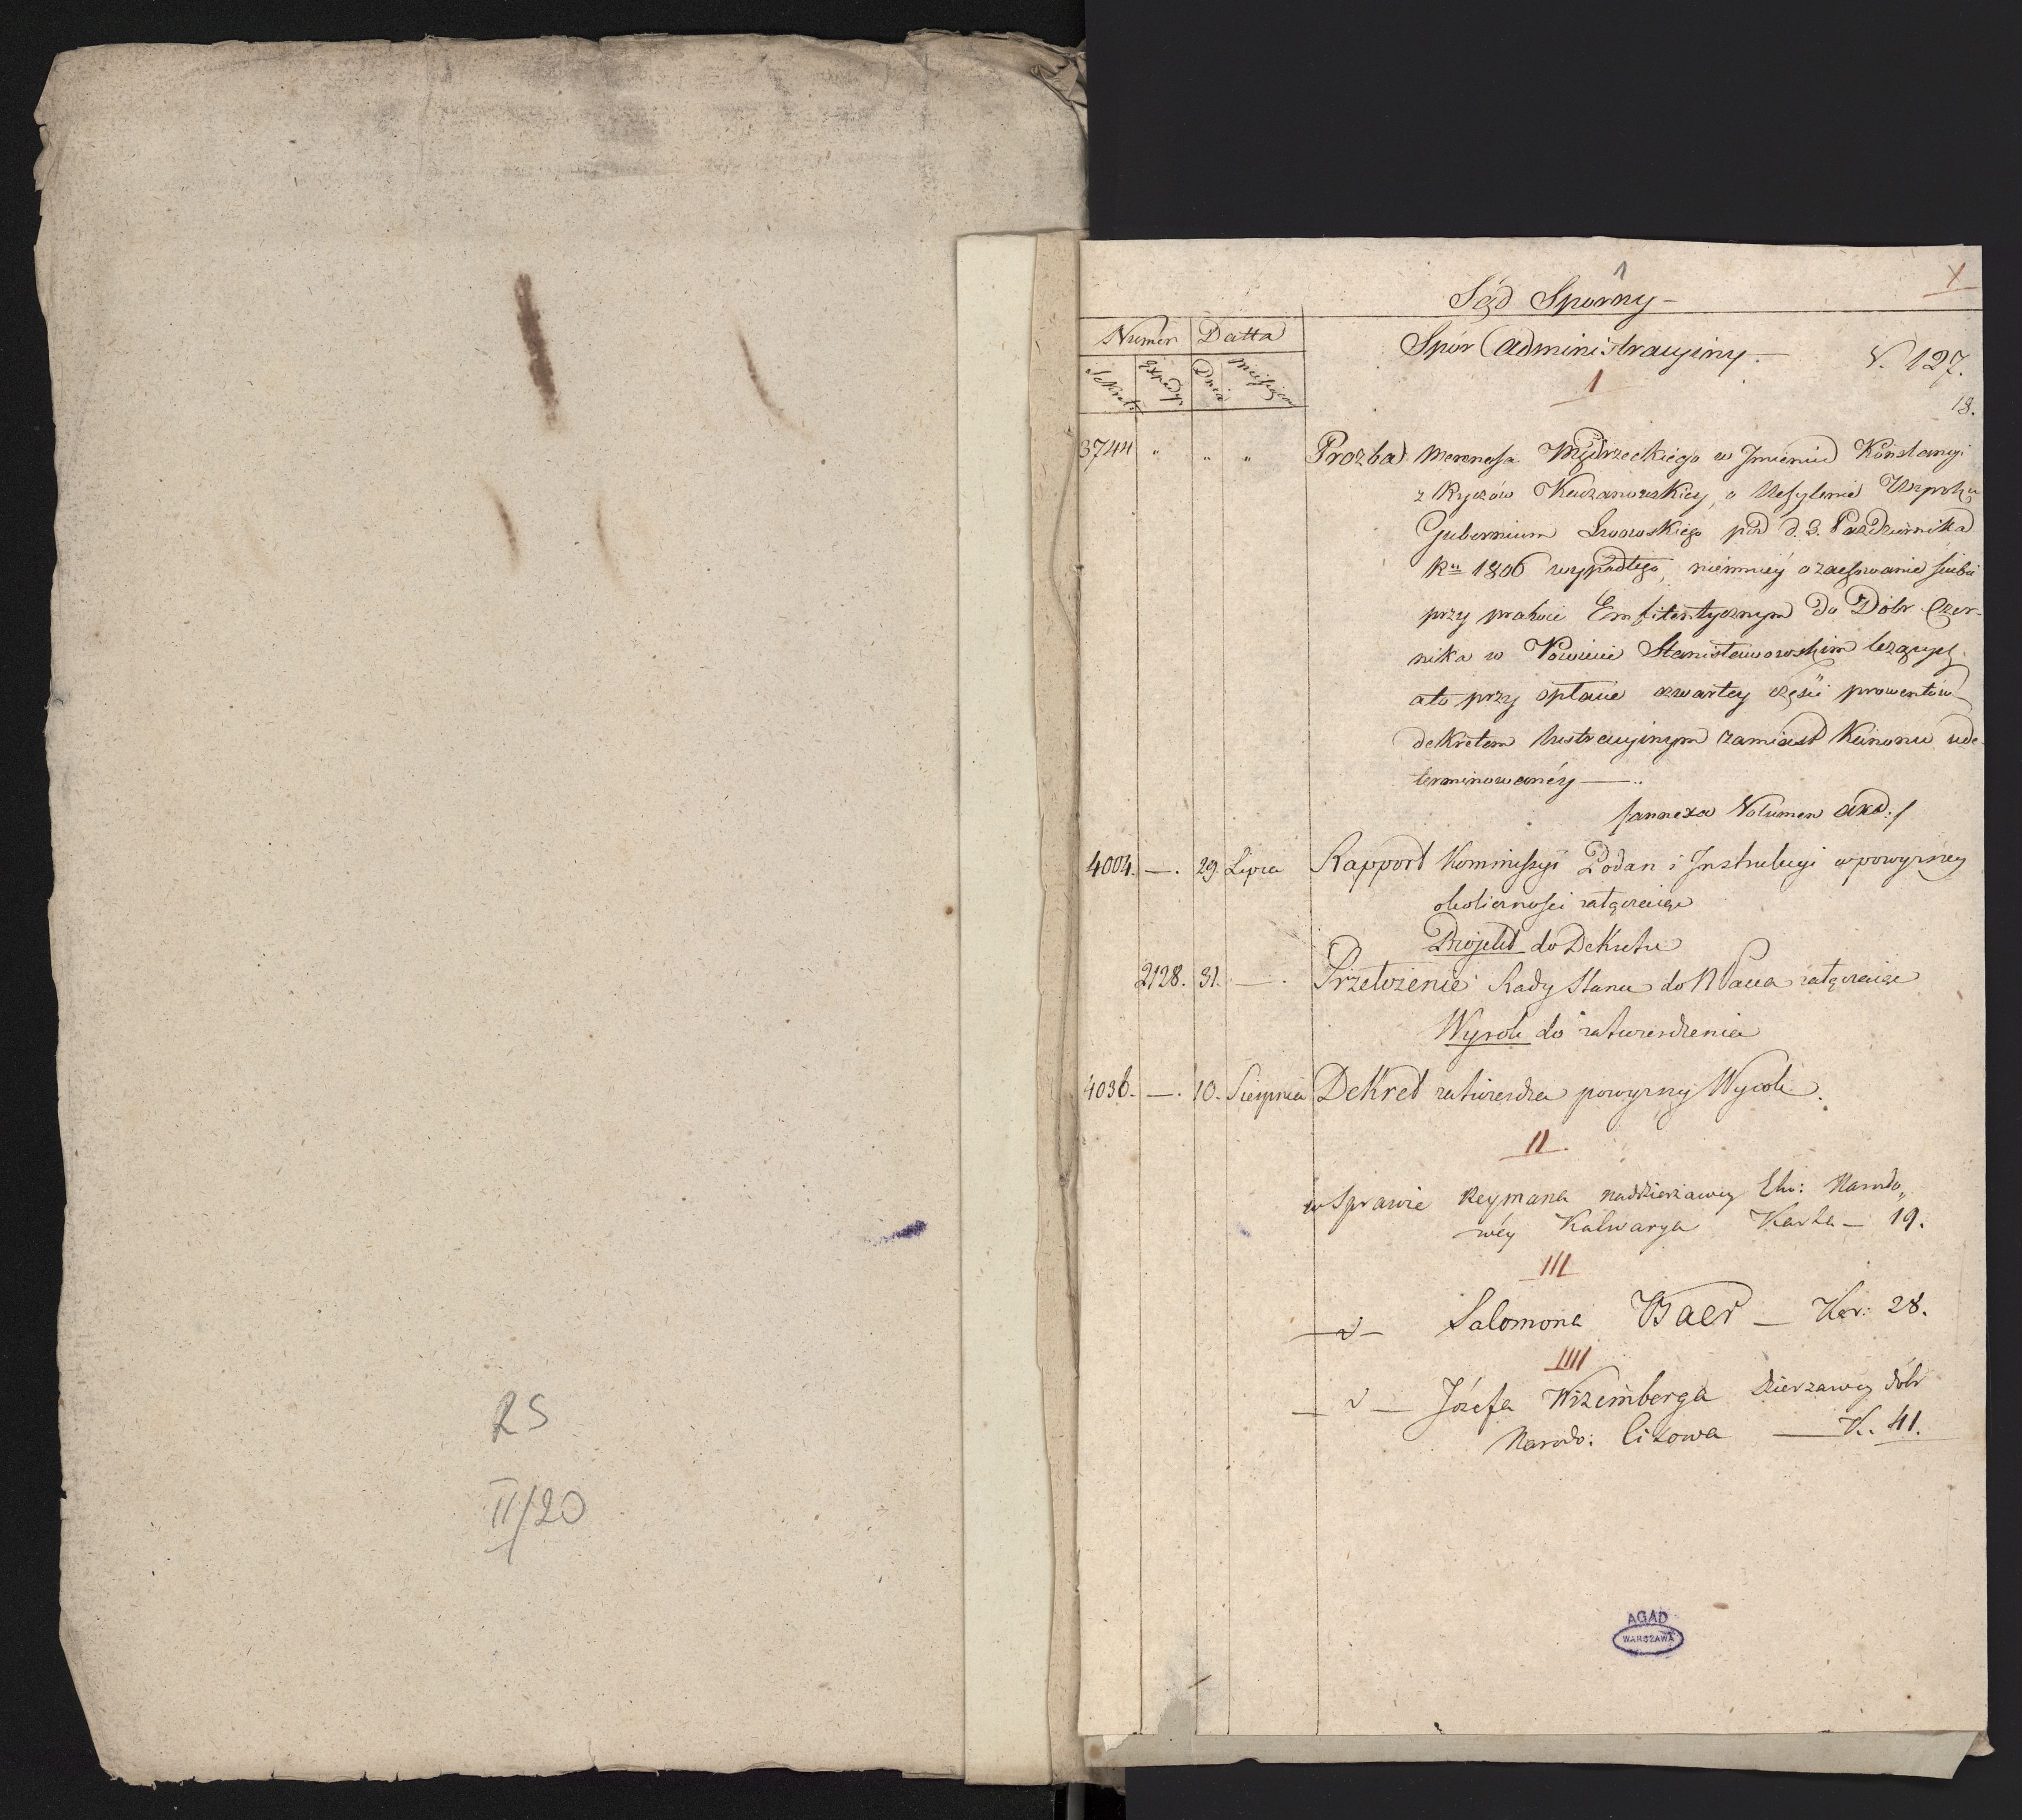 RS
II/20
1
X
Sąd Sporny –
Numer Datta
Spór Administracyiny. –
N. 127.
Sekret: Exped: Dnia Miesiąca
I
18.
3744 " " " Prozba Mecenasa Mędrzeckiego w Imieniu Konstancyi
z Ryczów Kuczanowskiey, o Uchylenie
Gubernium Lwowskiego pod d. 3. Października
Ru 1806 wypadłego, niemniey o zachowanie siebie
przy prawie Emfiteutycznym do Dóbr Czer-
nika w Powiecie Stanisławowskim leżących
a to przy opłacie czwartey części prowentów
dekretem lustracyinym zamiast Kanonu ude-
terminowanéy —
/annexa Volumen akt:/
4004. —. 29. Lipca Rapport Kommissyi Podan i Instrukcyi w powyzszey
okoliczności załączaiąc
Projekt do Dekretu
2128. 31. —. Przełożenie Rady Stanu do NPana załączaiąc
Wyrok do zatwierdzenia
4036. —. 10. Sierpnia Dekret zatwierdza powyzszy Wyrok.
II
w Sprawie Reymana naddzierżawcy Eko: Narodo„
wéy Kalwarya Karta – 19.
III
— d — Salomona Baer — Kar: 28.
IIII
— d — Józefa Wizemberga dzierzawcy dóbr
Narodo: Cizowa — K. 41.
AGAD
WARSZAWA